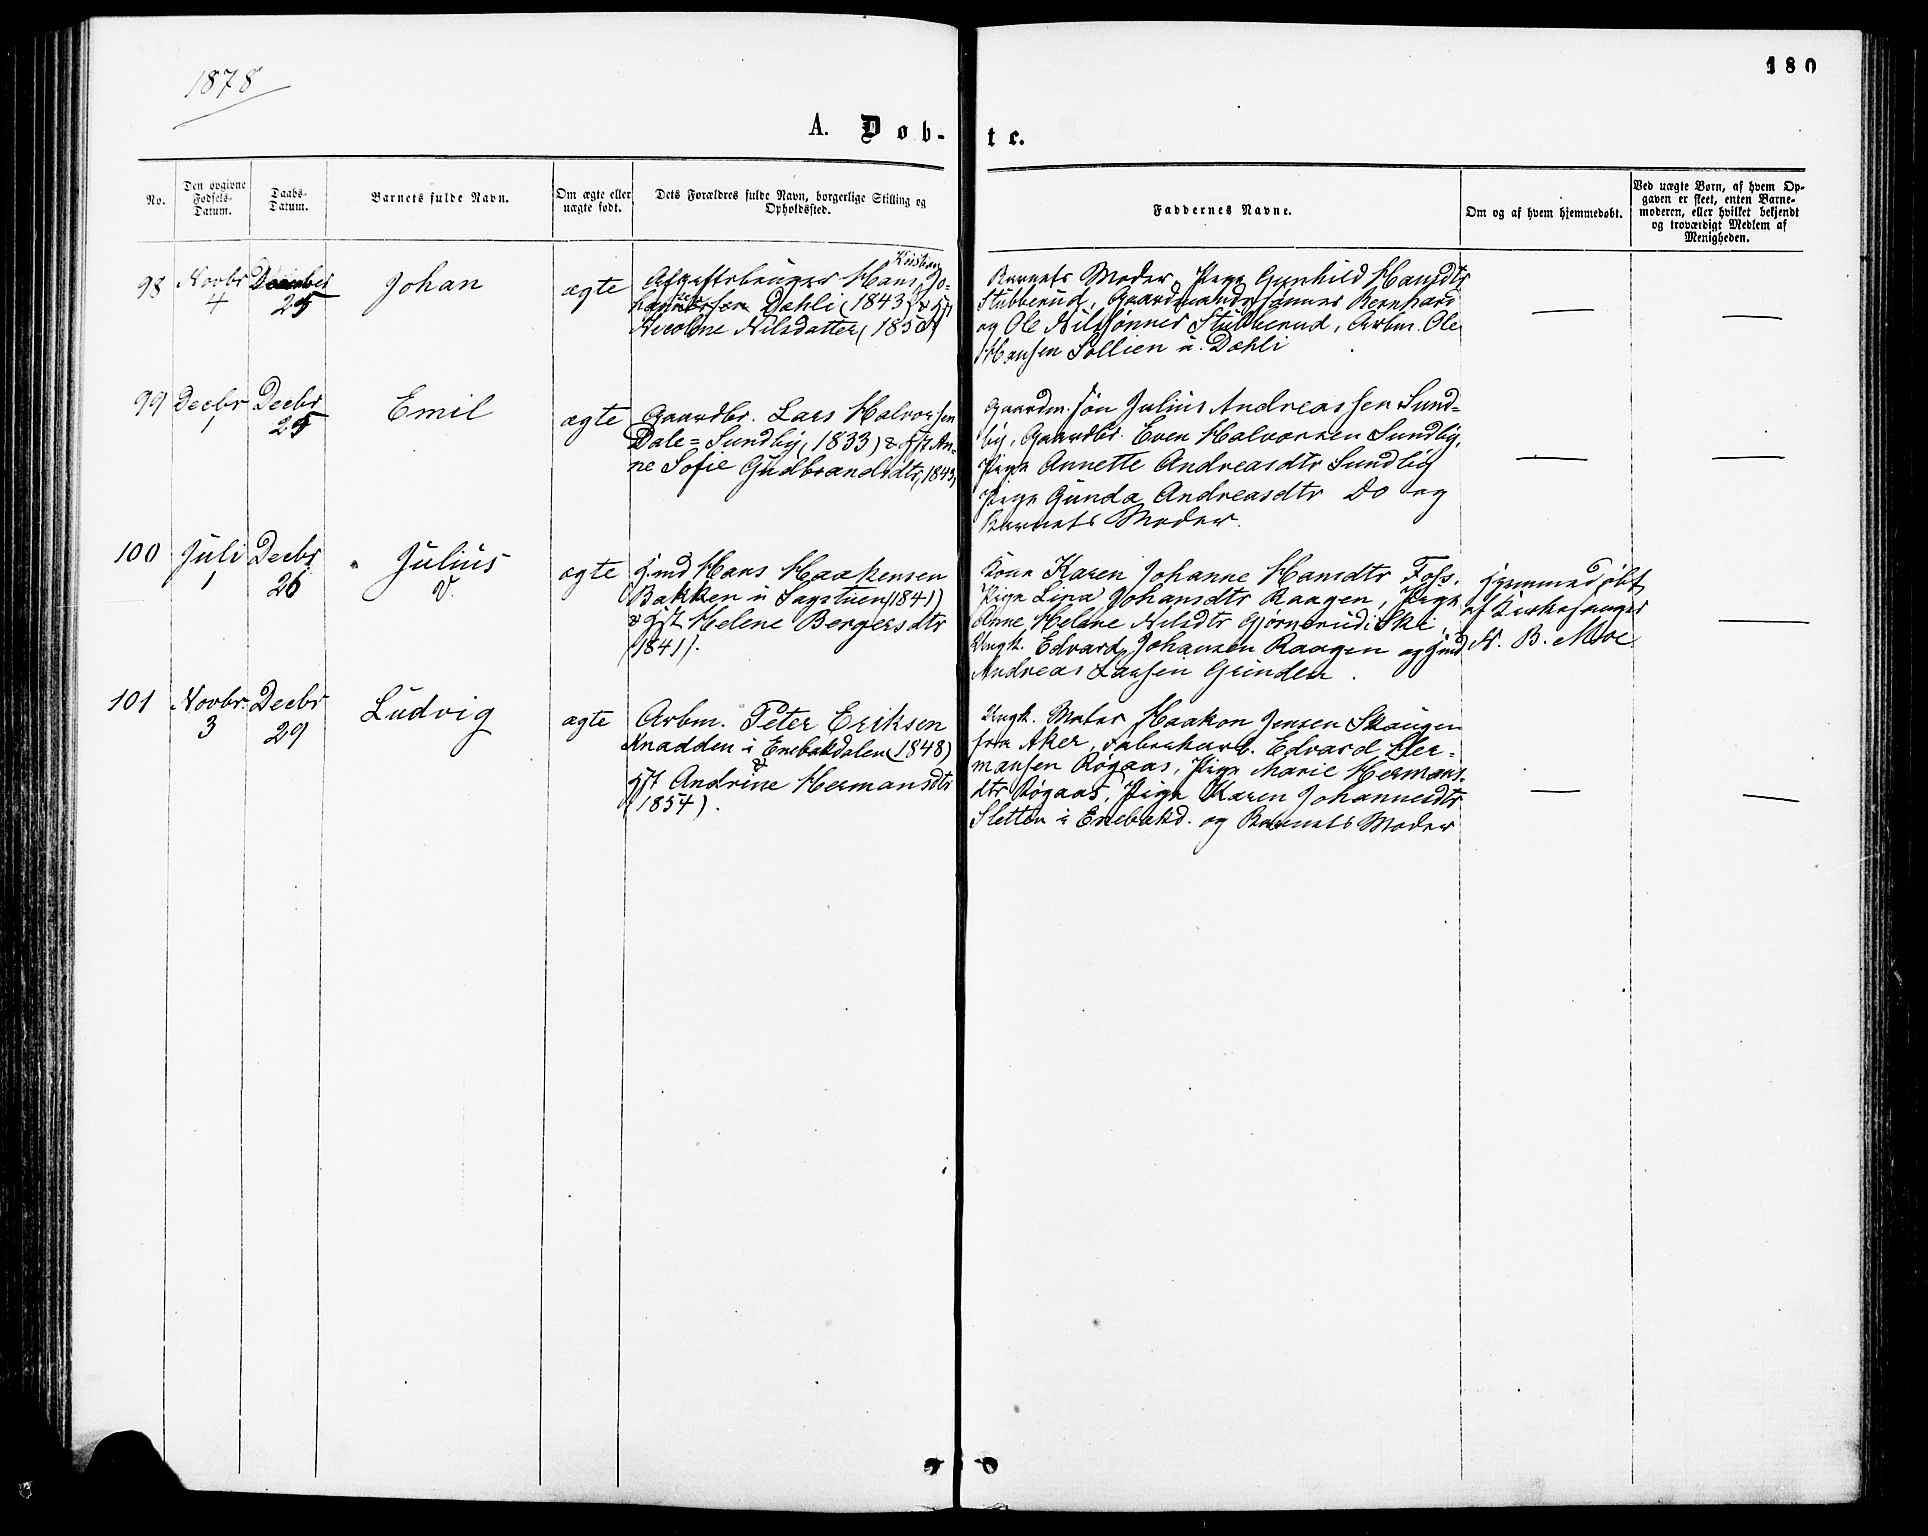 1878
180
A. Døb-
te.
No.
Den opgivne
Fødsels-
Datum.
Daabs-
Datum.
Barnets fulde Navn.
Om ægte eller
uægte født.
Dets Forældres fulde Navn, borgerlige Stilling og
Opholdssted.
Faddernes Navne.
Om og af hvem hjemmedøbt.
Ved uægte Børn, af hvem Op-
gaven er skeet, enten Barne-
moderen, eller hvilket bekjendt
og troværdigt Medlem af
Menigheden.
98
Novbr
4
December
25
Johan
ægte
Kristian
Afgiftsbruger Hans Jo-
hannessen Dæhli (1843) & Hst
Nicoline Nilsdatter (1850)
Barnets Moder, Pige Gunhild Hansdtr
Stubberud, Gaardmandssønner Bernhard
og Ole Nilssønner Stubberud, Arbm. Ole
Hansen Sollien u. Dæhli
—
—
99
Decbr
1
Decbr
25
Emil
ægte
Gaardbr. Lars Halvorsen
Dale=Sundby (1833) & Hst An-
ne Sofie Gudbrandsdtr (1843)
Gaardm. søn Julius Andreassen Sund-
by, Gaardbr. Even Halvorsen Sundby,
Pige Annette Andreasdtr Sundby
Pige Gunda Andreasdtr Do og
Barnets Moder.
—
—
100
Juli
1
Decbr
26
Julius
V.
ægte
Hmd Hans Haakensen
Bakken u Sagstuen (1841)
& Hst Helene Bergersdtr
(1841).
Kone Karen Johanne Hansdtr Foss,
Pige Lina Johansdtr Raagen, Pige
Anne Helene Nilsdtr Gjørnerud i Ski,
Ungk. Edvard Johansen Raagen og Hmd
Andreas Larsen Grinden.
Hjemmedøbt
af Kirkesanger
N. B. Moe
—
101
Novbr.
3
Decbr
29
Ludvig
ægte
Arbm. Peter Eriksen
Knadden i Enebakdalen (1848)
&
Hst Andrine Hermansdtr
(1854).
Ungk. Maler Haakon Jensen Skaugen
fra Aker, Fabrikarb. Edvard Her-
mansen Røgaas, Pige Marie Hermans-
dtr Røgaas, Pige Karen Johannesdtr
Sletten i Enebakd. og Barnets Moder
—
—